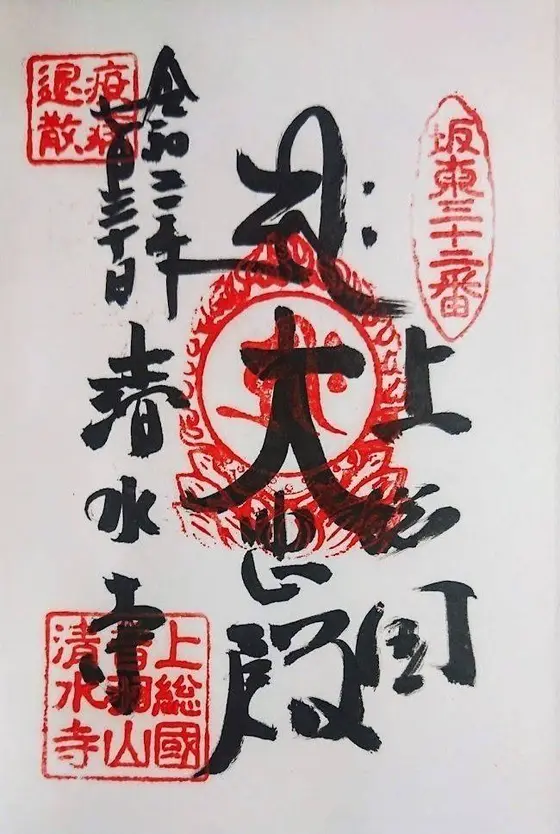 坂東三十二番
上総国
大悲殿
令和二年
七月三十日
疫病
退散
清水寺
上総國
音羽山
清水寺